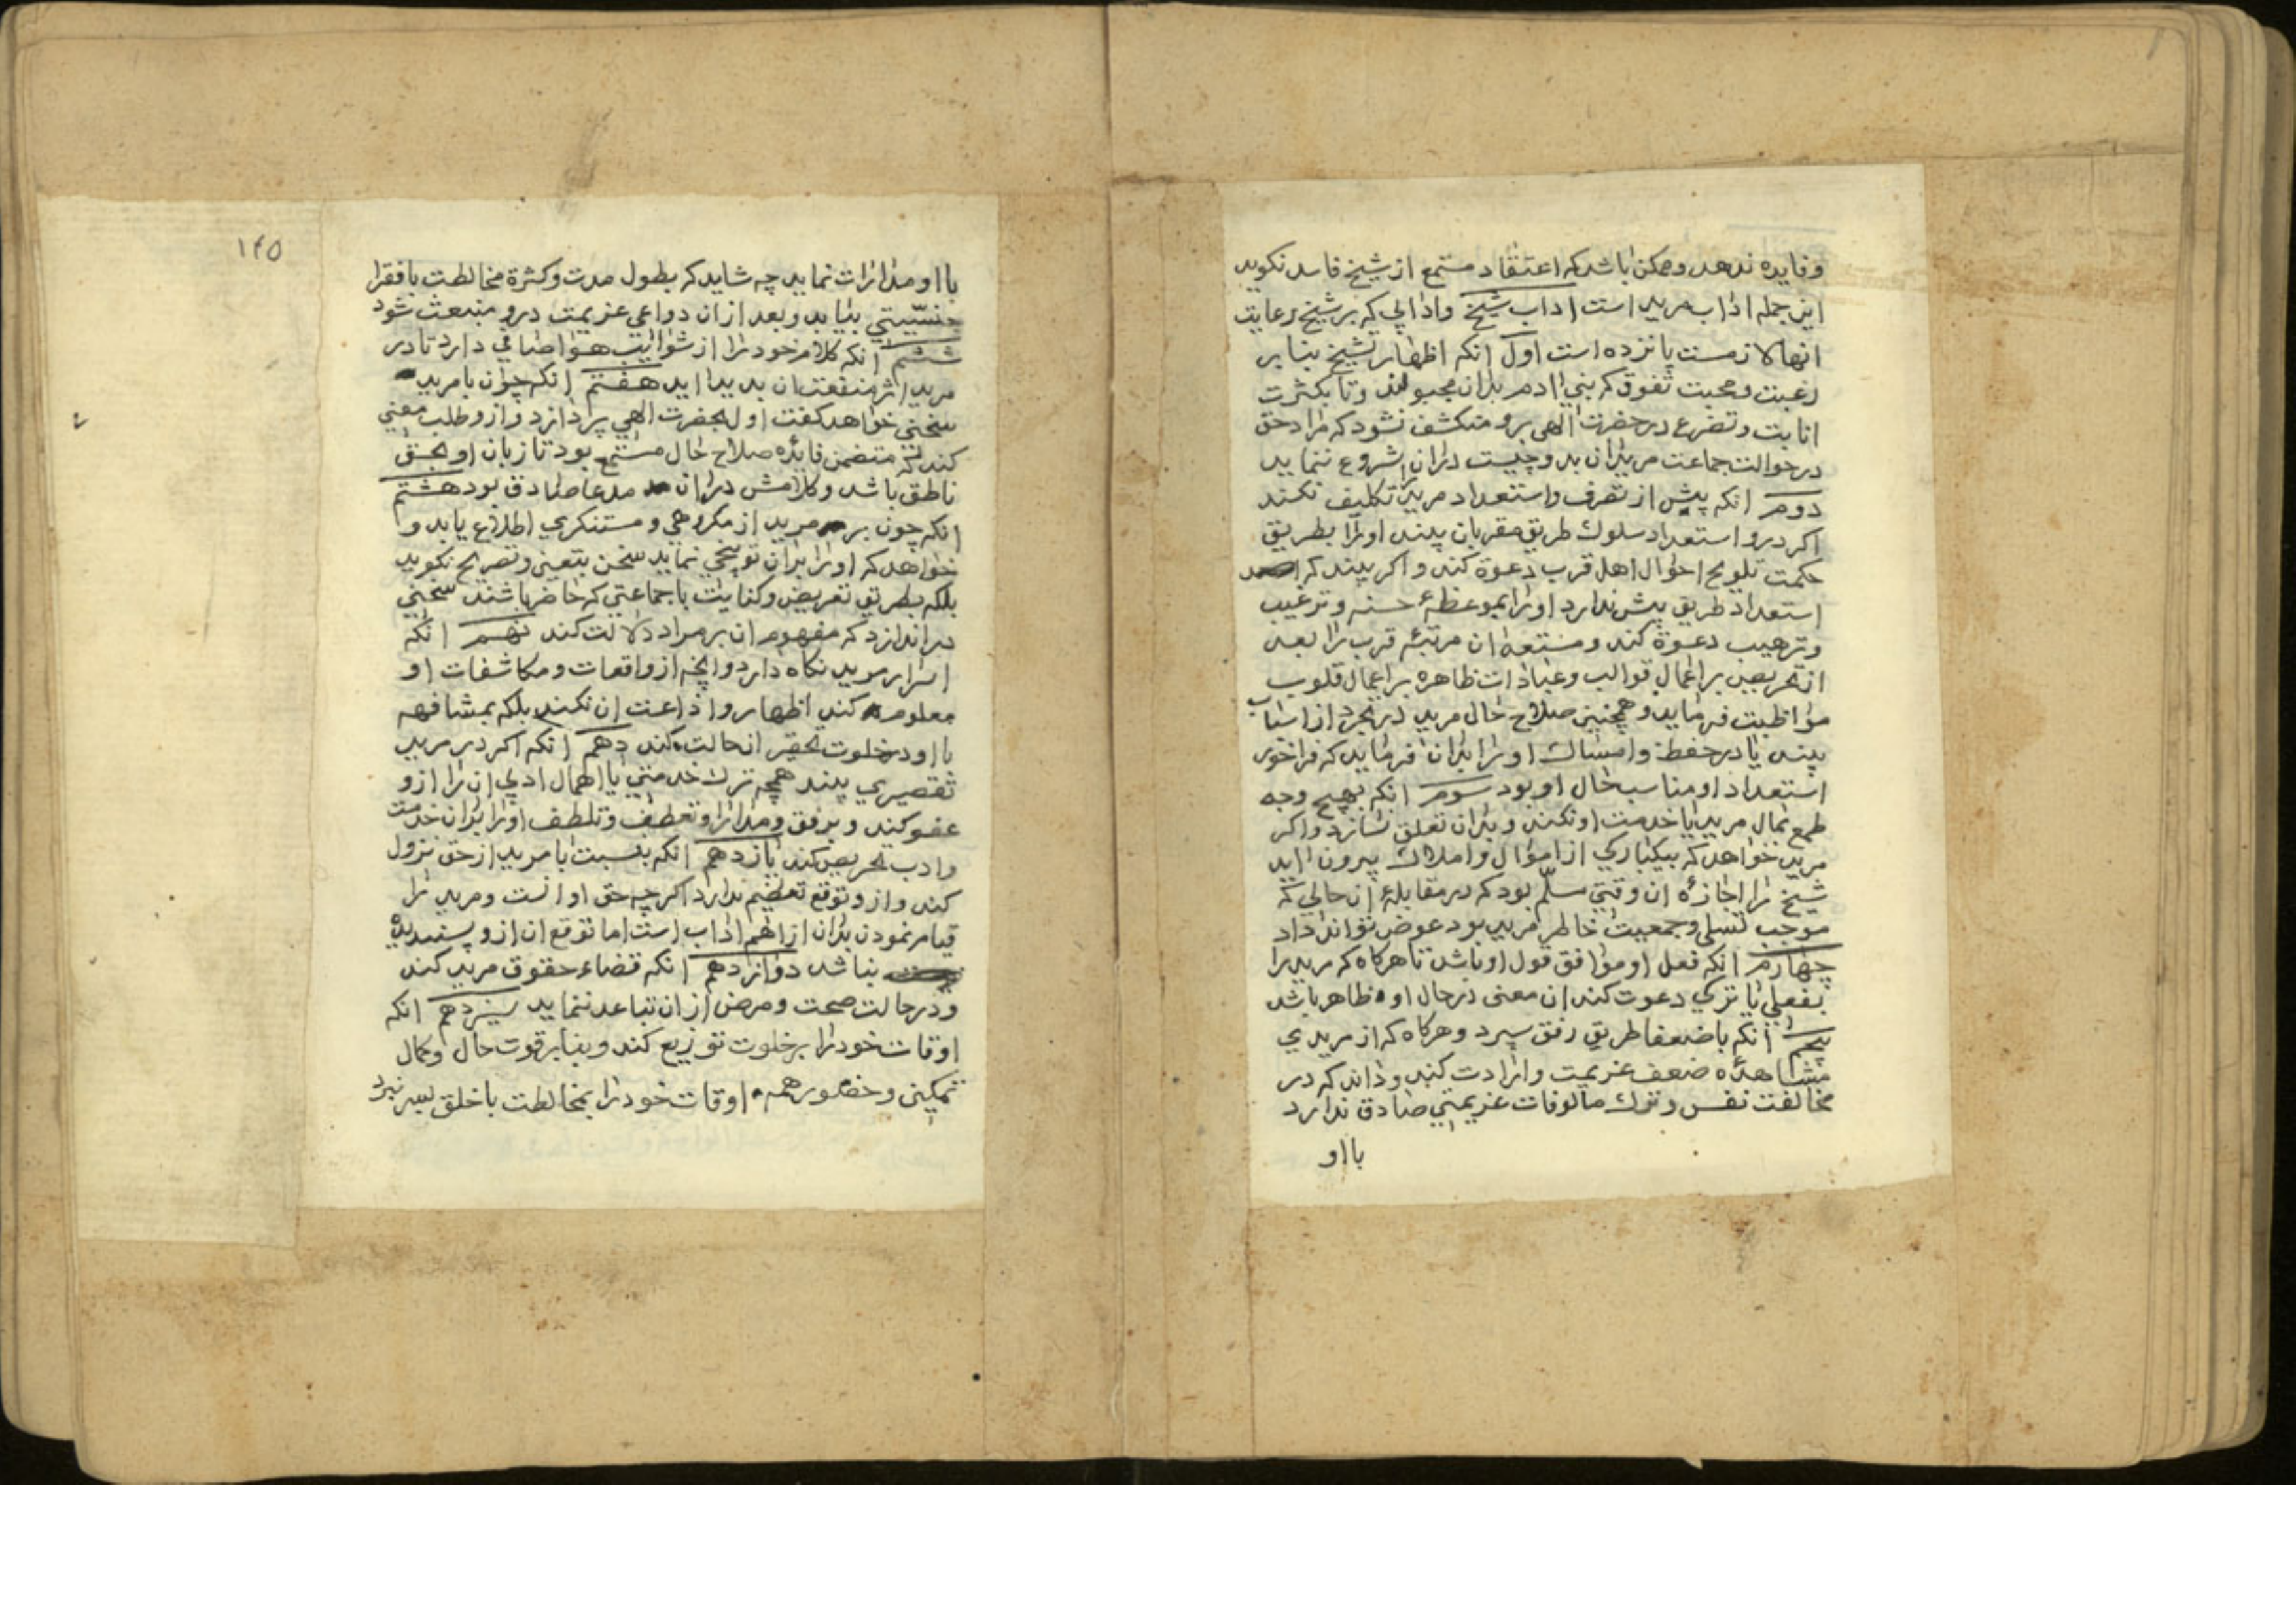 وفایده ندهد وممکن باشد که اعتقاد مستمع از شیخ فاسد نکوید
این جمله اداب مرید است اداب شیخ وادابی که بر شیخ رعایت
انها لازمست پانزده است اول انکه اظهار تشیخ بنابر
رغبت ومحبت تفوق که بنی ادم بران مجبولند وتا بکثرت
انابت وتضرع در حضرت الهی برو منکشف نشود که مراد حق
در حوالت جماعت مریدان بدو چیست دران شروع ننماید
دوم انکه پیش از تصرف واستعداد مرید را تکلیف نکند
اکر درو استعداد سلوك طریق مقربان بیند اورا بطریق
حکمت تلویح احوال اهل قرب دعوة کند واکر بیند که
استعداد طریق پیش ندارد اورا بموعظهٔ حسنه وترغیب
وترهیب دعوة کند ومستعد ان مرتبهٔ قرب را بعد
از تحریص بر اعمال قوالب وعبادات ظاهره بر اعمال قلوب
مواظبت فرماید وهمچنین صلاح حال مرید در تجرد از اسباب
بیند یا در حفظ وامساك اورا بران فرماید که فراخور
استعداد او مناسب حال او بود سوم انکه بهیچ وجه
طمع بمال مرید یا خدمت او نکند وبدان تعلق نسازد واکر
مرید خواهد که بیکبارکی از اموال واملاك بیرون اید
شیخ را اجازهٔ ان وقتی مسلّم بود که در مقابلهٔ ان حالی که
موجب تسلی وجمعیت خاطر مرید بود عوض تواند داد
چهارم انکه فعل او موافق قول او باشد تا هرکاه که مرید را
بفعلی یا ترکی دعوت کند ان معنی در حال او ظاهر باشد
پنجم انکه با ضعفا طریق رفق سپرد وهرکاه که از مریدی
مشاهدهٔ ضعف عزیمت وارادت کند وداند که در
مخالفت نفس وترك مالوفات عزیمتی صادق ندارد
با او
۱۴۵
با او مدارات نماید چه شاید که بطول مدت وکثرة مخالطت با فقرا
جنسیّتی بیابد وبعد ازان دواعی عزیمت درو منبعث شود
ششم انکه کلام خودرا از شوایب هوا صافی دارد تا در
مرید اثر منفعت ان بدید اید هفتم انکه چون با مرید
سخنی خواهد کفت اول بحضرت الهی پردازد وازو طلب معنی
کند که متضمن فائده صلاح حال مستمع بود تا زبان او بحق
ناطق باشد وکلامش دران مدعا صادق بود هشتم
انکه چون بر مرید از مکروهی ومستنکری اطلاع یابد و
خواهد که اورا بران توبیخی نماید سخن بتعین وتصریح نکوید
بلکه بطریق تعریض وکنایت با جماعتی که حاضر باشند سخنی
در اندازد که مفهوم ان بر مراد دلالت کند نهم انکه
اسرار مرید نکاه دارد وانچه از واقعات ومکاشفات او
معلوم کند اظهار واذاعت ان نکند بلکه بمشافهه
با او در خلوت تحقیر ان حالت کند دهم انکه اکر در مرید
تقصیری بیند همچه ترك خدمتی یا اهمال ادبی ان را ازو
عفو کند وبرفق ومدارا وتعطف وتلطف اورا بران خدمت
وادب تحریص کند یازدهم انکه بنسبت با مرید از حق نزول
کند وازو توقع تعظیم ندارد اکرچه حق اوانست ومرید را
قیام نمودن بدان از اهم اداب است اما توقع ان ازو پسندیده
نباشد دوازدهم انکه قضاء حقوق مرید کند
ودر حالت صحت ومرض ازان تباعد ننماید سیزدهم انکه
اوقات خودرا بر خلوت توزیع کند وبنابر قوت حال وکمال
تمکین وحضور همه اوقات خودرا بمخالطت با خلق بسر نبرد